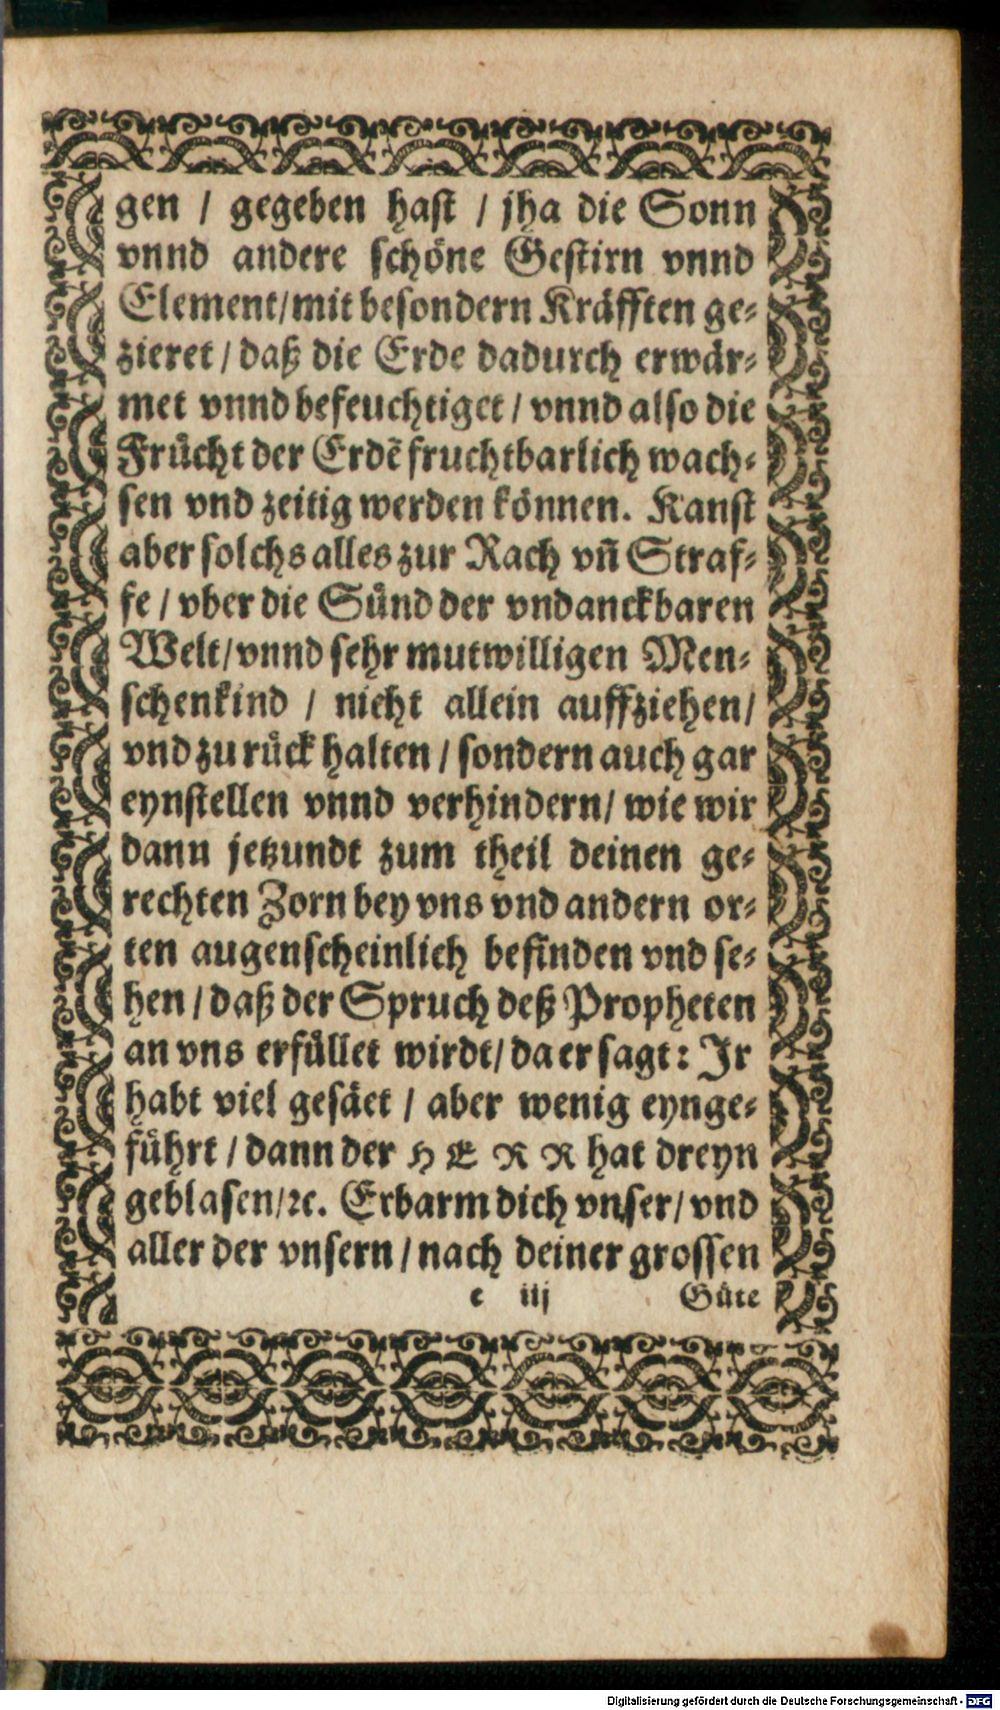 gen / gegeben haſt / jha die Sonn
vnnd andere ſchöne Geſtirn vnnd
Element/mit beſondern Kräfften ge⸗
zieret / daß die Erde dadurch erwär⸗
met vnnd befeuchtiget / vnnd alſo die
Frücht der Erdē fruchtbarlich wach⸗
ſen vnd zeitig werden können. Kanſt
aber ſolchs alles zur Rach vñ Straf⸗
fe / vber die Sünd der vndanckbaren
Welt/vnnd ſehr mutwilligen Men⸗
ſchenkind / nicht allein auffziehen/
vnd zu rück halten / ſondern auch gar
eynſtellen vnnd verhindern/ wie wir
dann jetzundt zum theil deinen ge⸗
rechten Zorn bey vns vnd andern or⸗
ten augenſcheinlich befinden vnd ſe⸗
hen / daß der Spruch deß Propheten
an vns erfüllet wirdt/ da er ſagt: Jr
habt viel geſäet / aber wenig eynge⸗
führt / dann der HERR hat dreyn
geblaſen/ꝛc. Erbarm dich vnſer/ vnd
aller der vnſern / nach deiner groſſen
c iij Güte
Digitalisierung gefördert durch die Deutsche Forschungsgemeinschaft - DFG